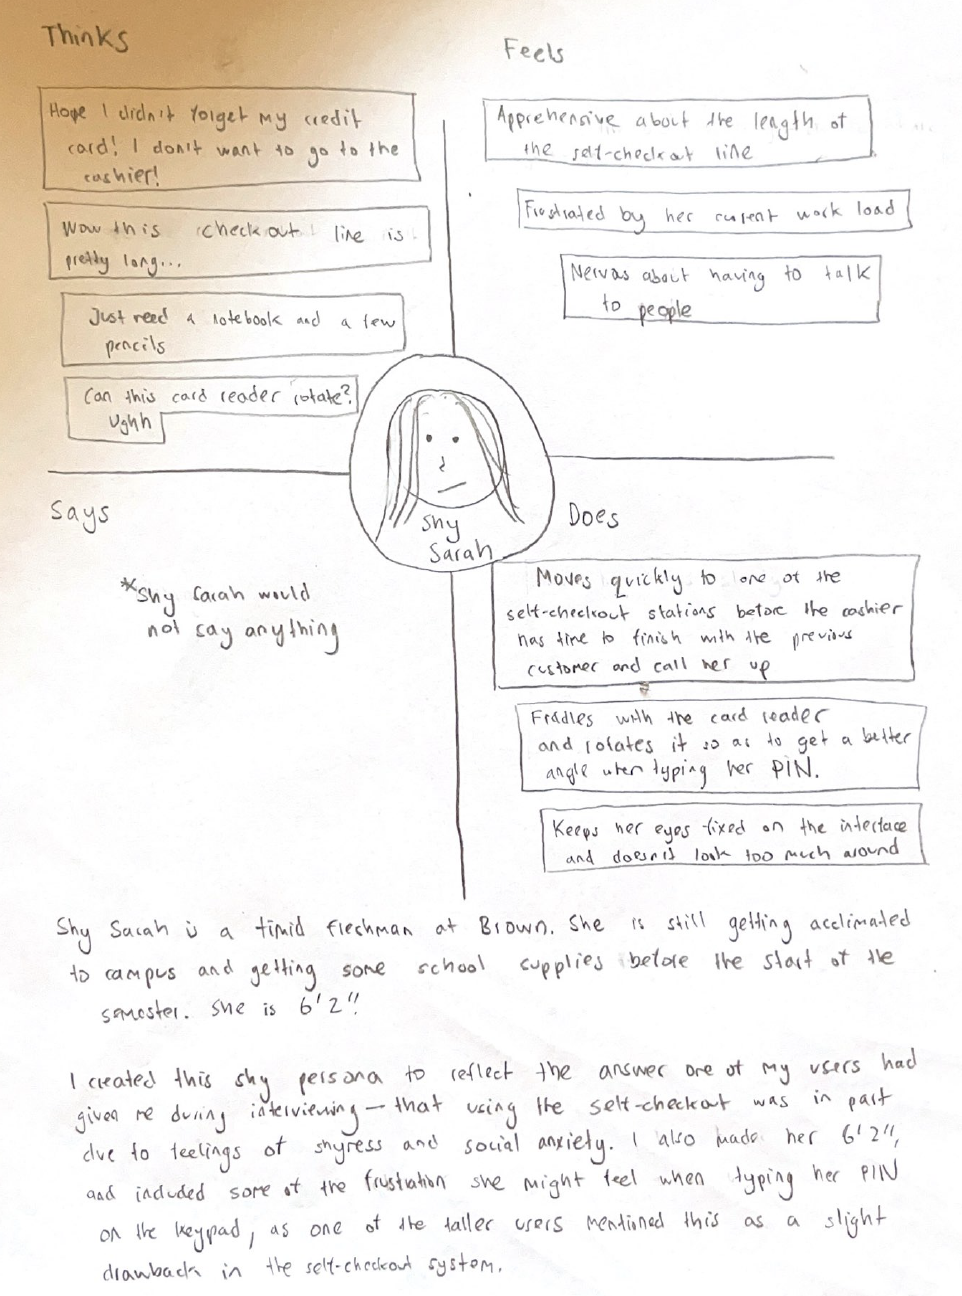 Thinks
Hope I didn't forget my credit
card! I don't want to go to the
cashier!
Wow this checkout line is
pretty long...
Just need a notebook and a few
pencils
Can this card reader rotate?
Ughh
Feels
Apprehensive about the length of
the self-checkout line
Frustrated by her current work load
Nervos about having to talk
to people
Shy
Sarah
Says
*Shy Sarah would
not say anything
Does
Moves quickly to one of the
self-checkout stations before the cashier
has time to finish with the previous
customer and call her up
Fiddles with the card reader
and rotates it so as to get a better
angle when typing her PIN.
Keeps her eyes fixed on the interface
and doesn't look too much around
Shy Sarah is a timid freshman at Brown. She is still getting acclimated
to campus and getting some school supplies before the start of the
semester. She is 6'2"!
I created this shy persona to reflect the answer one of my users had
given me during interviewing — that using the self-checkout was in part
due to feelings of shyness and social anxiety. I also made her 6'2",
and included some of the frustration she might feel when typing her PIN
on the keypad, as one of the taller users mentioned this as a slight
drawback in the self-checkout system.